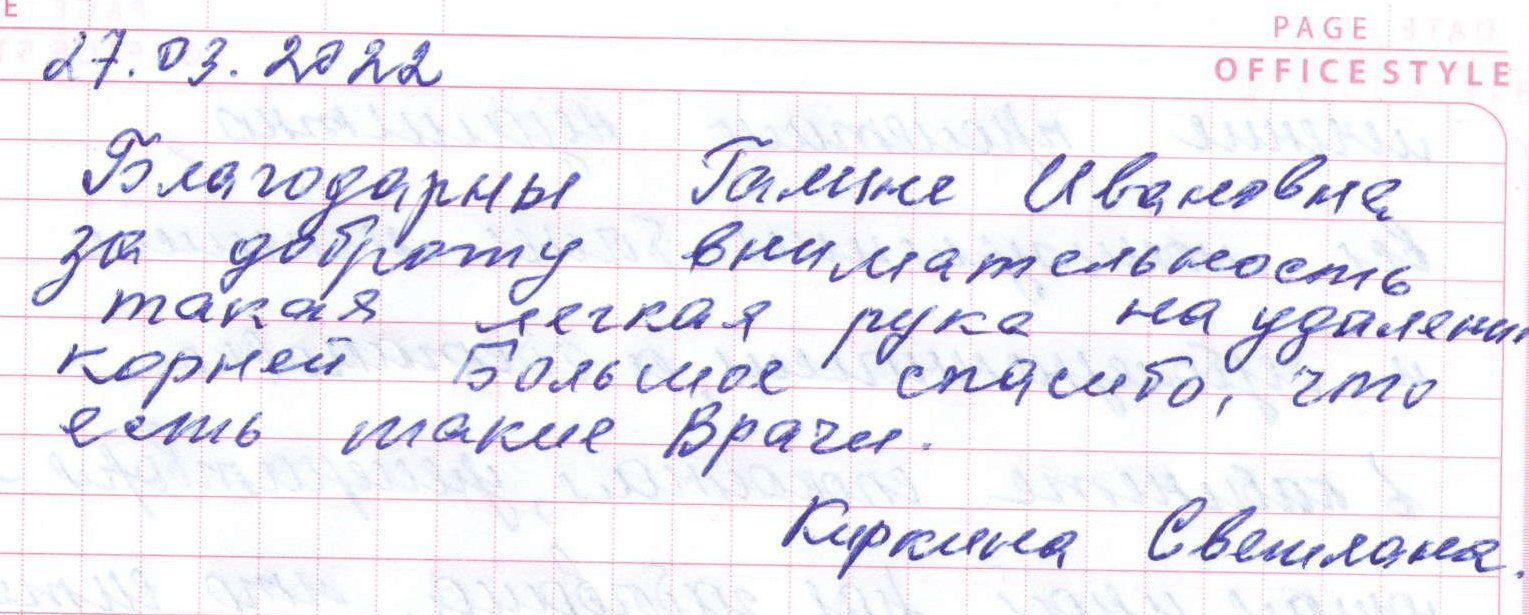 PAGE
OFFICE STYLE
27.03.2022
Благодарны Галине Ивановна
за доброту внимательность
такая легкая рука на удалении
корней Большое спасибо, что
есть такие Врачи.
Киркина Светлана.